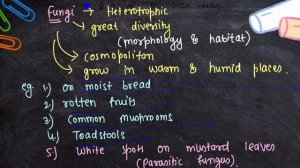 Fungi → Heterotrophic
→ great diversity
(morphology & habitat)
→ cosmopoliton
→ grow in warm & humid places.
eg 1) on moist bread
2) rotten fruits
3) Common mushrooms
4) Toadstools
5) White spots on mustard leaves
(Parasitic fungus)